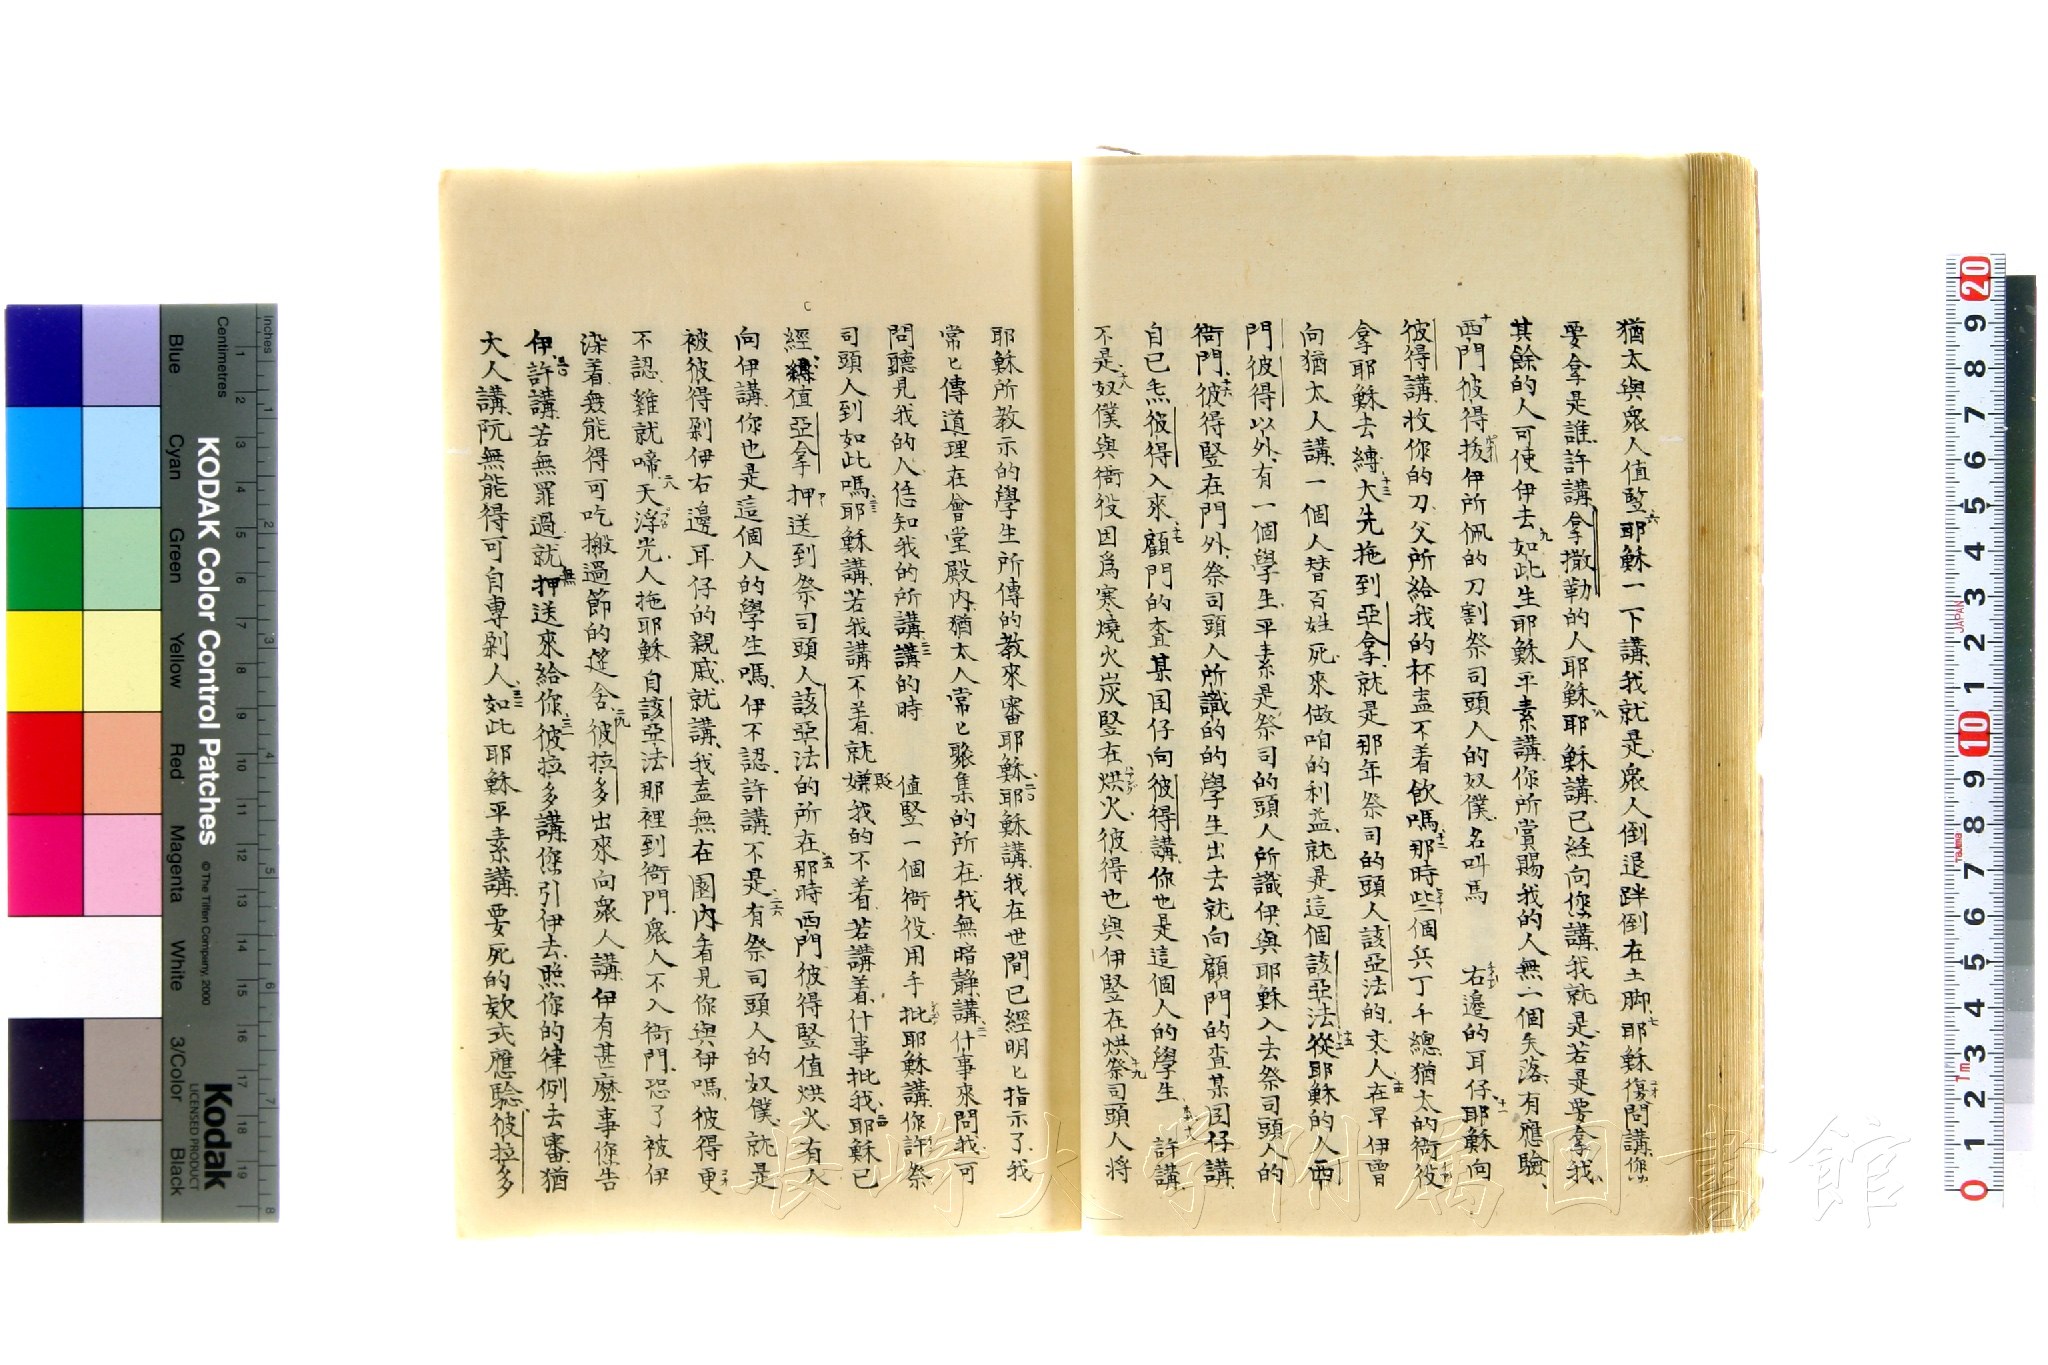 猶太與衆人值竪六耶穌一下講我就是衆人倒退跘倒在土脚七耶穌復問講你
要拿是誰許講拿撒勒的人耶穌八耶穌講已經向您講我就是若是要拿我
其餘的人可使伊去九如此生耶穌平素講你所賞賜我的人無一個失落有應驗
十西門彼得拔伊所佩的刀割祭司頭人的奴僕名叫馬 右邊的耳仔十一耶穌向
彼得講收你的刀父所給我的杯盍不着飲嗎十二那時些個兵丁千總猶太的衙役
拿耶穌去縛十三大先拖到亞拿就是那年祭司的頭人該亞法的丈人在早十四伊曾
向猶太人講一個人替百姓死來做咱的利益就是這個該亞法十五從耶穌的人西
門彼得以外有一個學生平素是祭司的頭人所識伊與耶穌入去祭司頭人的
衙門十六彼得竪在門外祭司頭人所識的的學生出去就向顧門的查某囝仔講
自己𤆬彼得入來十七顧門的查某囝仔向彼得講你也是這個人的學生 許講
不是十八奴僕與衙役因爲寒燒火炭竪在烘火彼得也與伊竪在烘十九祭司頭人將
耶穌所教示的學生所傳的教來審耶穌二十耶穌講我在世間已經明匕指示了我
常匕傳道理在會堂殿內猶太人常匕聚集的所在我無暗静講二一什事來問我可
問聽見我的人恁知我的所講二二講的時 值竪一個衙役用手批耶穌講你許祭
司頭人到如此嗎二三耶穌講若我講不着就嫌我的不着若講着什事批我二四耶穌已
經縛值亞拿押送到祭司頭人該亞法的所在二五那時西門彼得竪值烘火有人
向伊講你也是這個人的學生嗎伊不認許講不是二六有祭司頭人的奴僕就是
被彼得剁伊右邊耳仔的親戚就講我盍無在園內看見你與伊嗎彼得更
不認雞就啼二八天浮光人拖耶穌自該亞法那裡到衙門衆人不入衙門恐了被伊
染着無能得可吃搬過節的筵舍二九彼拉多出來向衆人講伊有甚麽事您告
伊三十許講若無罪過就無押送來給你三一彼拉多講您引伊去照你的律例去審猶
大人講阮無能得可自專剁人三二如此耶穌平素講要死的欵式應驗彼拉多
Inches
Centimetres
KODAK Color Control Patches
© The Tiffen Company, 2000
Kodak
LICENSED PRODUCT
Blue
Cyan
Green
Yellow
Red
Magenta
White
3/Color
Black
JAPAN
長崎大学附属図書館